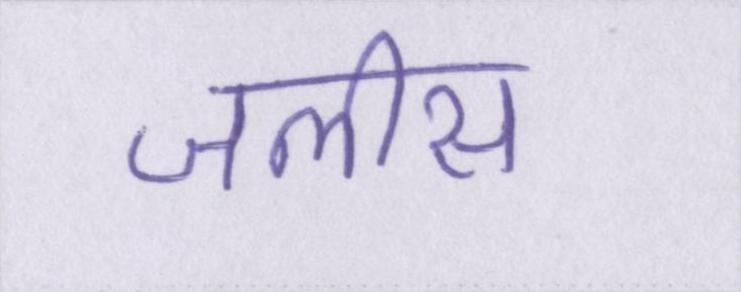 जलीस